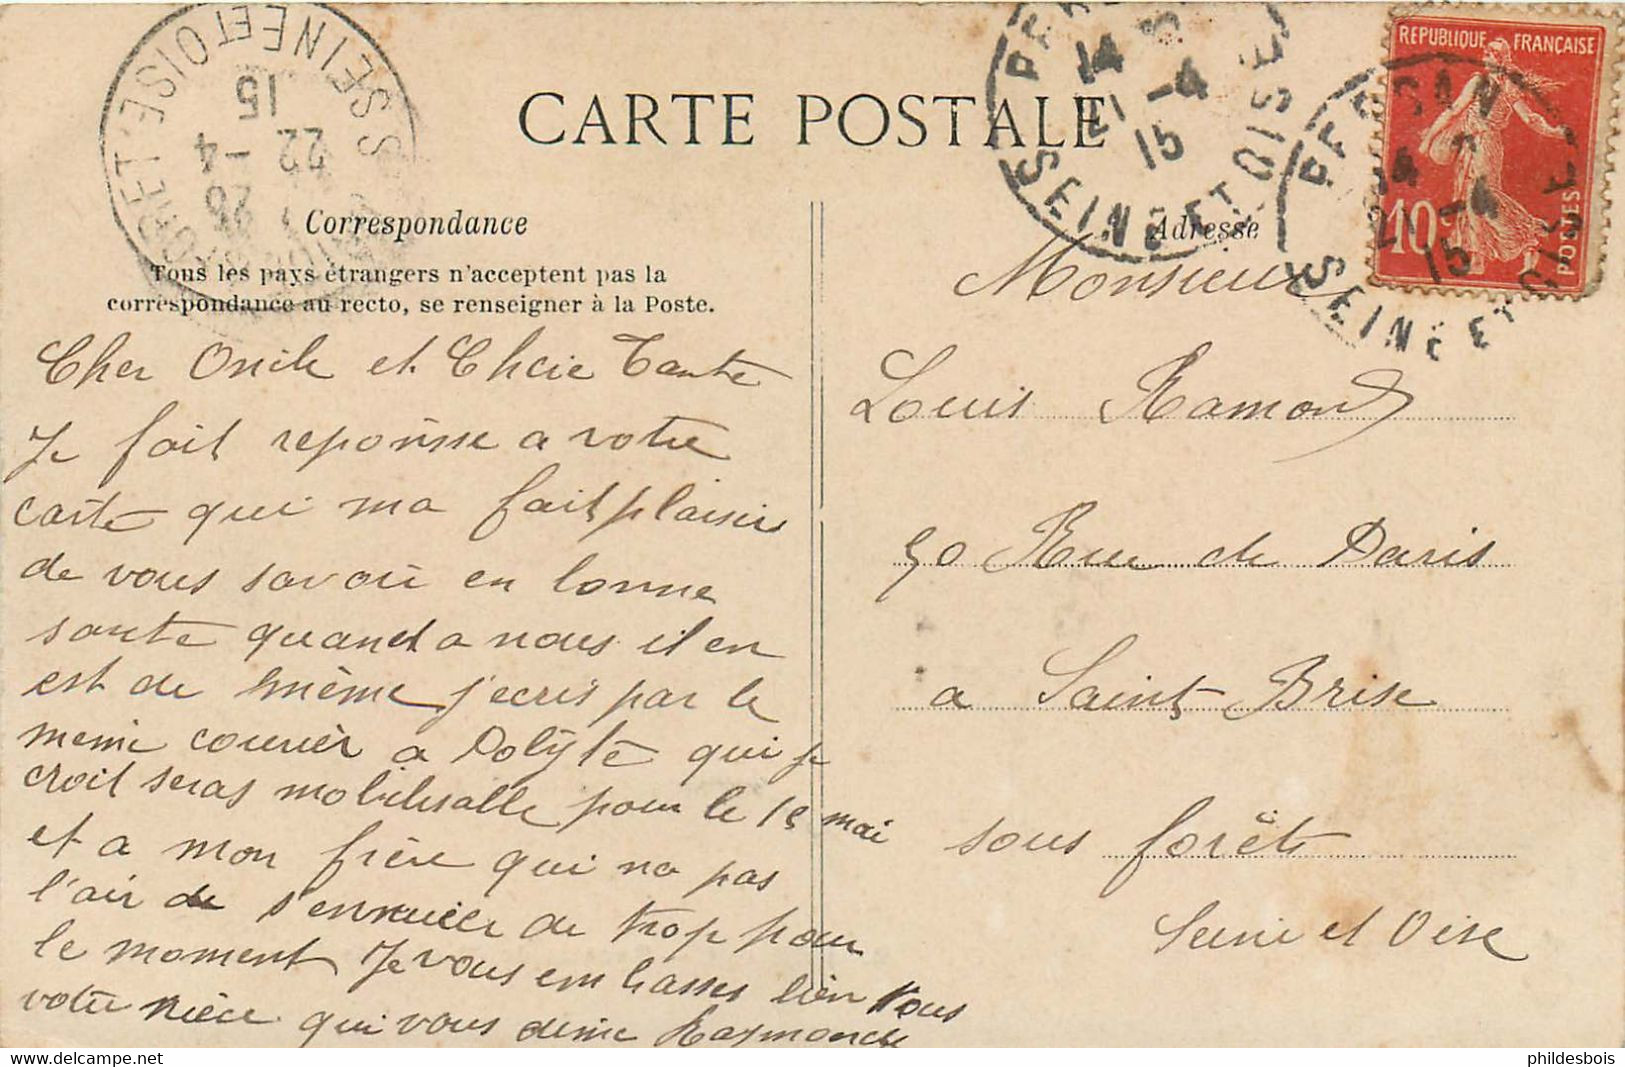 CARTE POSTALE
Correspondance
Tous les pays étrangers n'acceptent pas la
correspondance au recto, se renseigner à la Poste.
Cher Oncle et Chere Tante
Je fait reponsse a votre
carte qui ma fait plaisir
de vous savoir en bonne
sante quand a nous il en
est de même j'ecris par le
meme courrier a Polÿte qui je
croit seras mobilisable pour le 15 mai
et a mon frère qui na pas
l'air de s'ennuier de trop pour
le moment Je vous embrasses bien tous
votre nièce qui vous aime Raymonde
Adresse
Monsieur
Louis Ramond
50 Rue de Paris
a Saint Brise
sous forêts
Seine et Oise
REPUBLIQUE FRANÇAISE
10 c
POSTES
PERSAN
14
21 -4
15
SEINE ET OISE
PERSAN
14
21 -4
15
SEINE ET OISE
SEINE ET OISE
15
22 -4
phildesbois